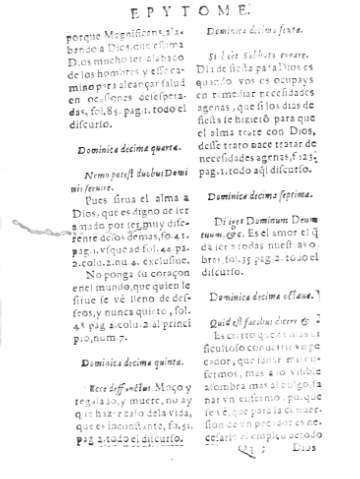 EPYTOME.
porque Magnificens, ala-
bando a Dios, que estima
Dios mucho ser alabado
de los hombres y esse ca-
mino para alcançar salud
en ocasiones desespera-
das, fol. 85. pag. 1. todo el
discurso.
Dominica decima quarta.
Nemo potest duobus Domi
nis seruire.
Pues sirua el alma a
Dios, que es digno de ser
amado por ser muy dife-
rente de los demas, fo. 41.
pag. 1. vsque ad fol. 44. pa-
2. colu. 2. nu. 4. exclusiue.
No ponga su coraçon
en el mundo, que quien le
sirue se vè lleno de des-
seos, y nunca quieto, fol.
48 pag 2. colu. 2. al princi
pio, num. 7.
Dominica decima quinta.
Ecce deffunctus. Moço y
regalado, y muere, no ay
que hazer caso dela vida,
que es inconstante, fo. 51.
pag. 2. todo el discurso.
Dominica decima sexta.
Si licet Sabbato curare.
Dia de fiesta para Dios es
quando vos os ocupays
en remediar necessidades
agenas, que si los dias de
fiesta se hizierõ para que
el alma trate con Dios,
desse trato nace tratar de
necessidades agenas, f. 123.
pag. 1. todo aql discurso.
Dominica decima septima.
Diliges Dominum Deum
tuum, &c. Es el amor el q̃
dà ser a todas nuestras o-
bras, fol. 35 pag. 2. todo el
discurso.
Dominica decima octaua.
Quid est facilius dicere &c
Es cierto que es mas di
ficultoso conuertir vn pe
cador, que sanar mil en-
fermos, mas a lo visible
assombra mas al vulgo, sa
nar vn enfermo, porque
se vè, que para la conuer-
sion de vn pecador es ne-
cesario el empleo de todo
Dios